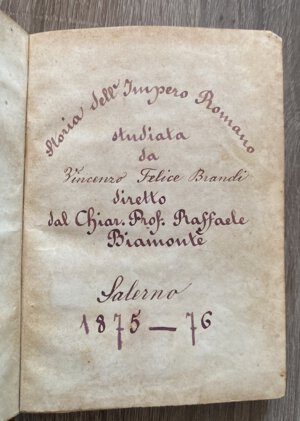 Storia dell'Impero Romano
studiata
da
Vincenzo Felice Brandi
diretto
dal Chiar. Prof. Raffaele
Biamonte
Salerno
1875 — 76